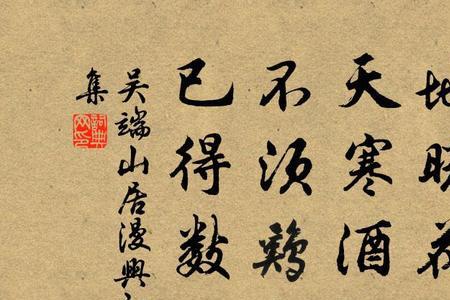 天寒酒
不須鷄
已得數
吴端山居漫興
集
詞典网印